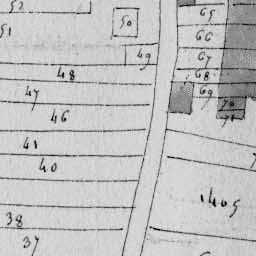 52
50
51
49
48
47
46
41
40
38
37
65
66
67
68
69
70
71
1405